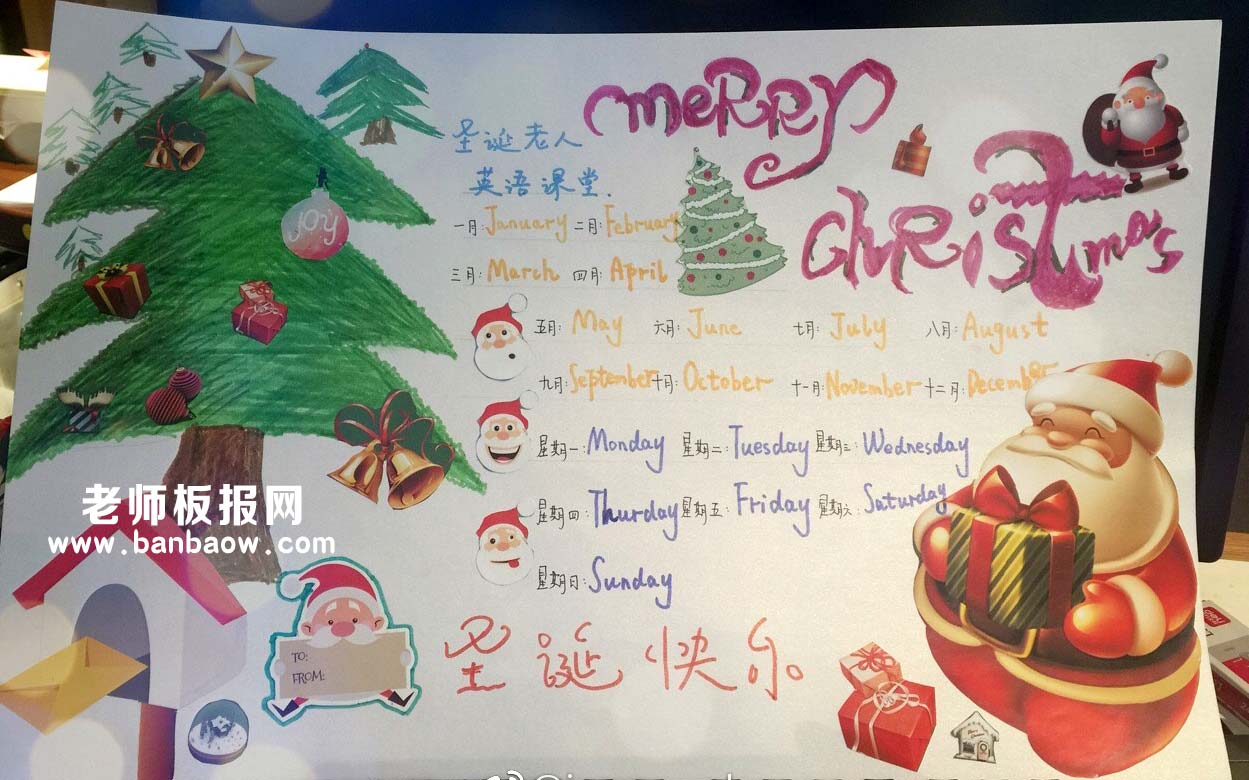 merry
Christmas
圣诞老人
英语课堂.
joy
一月: January 二月: February
三月: March 四月: April
五月: May 六月: June 七月: July 八月: August
九月: September 十月: October 十一月: November 十二月: December
星期一: Monday 星期二: Tuesday 星期三: Wednesday
星期四: Thurday 星期五: Friday 星期六: Saturday
星期日: Sunday
老师板报网
www.banbaow.com
TO:
FROM:
圣诞快乐